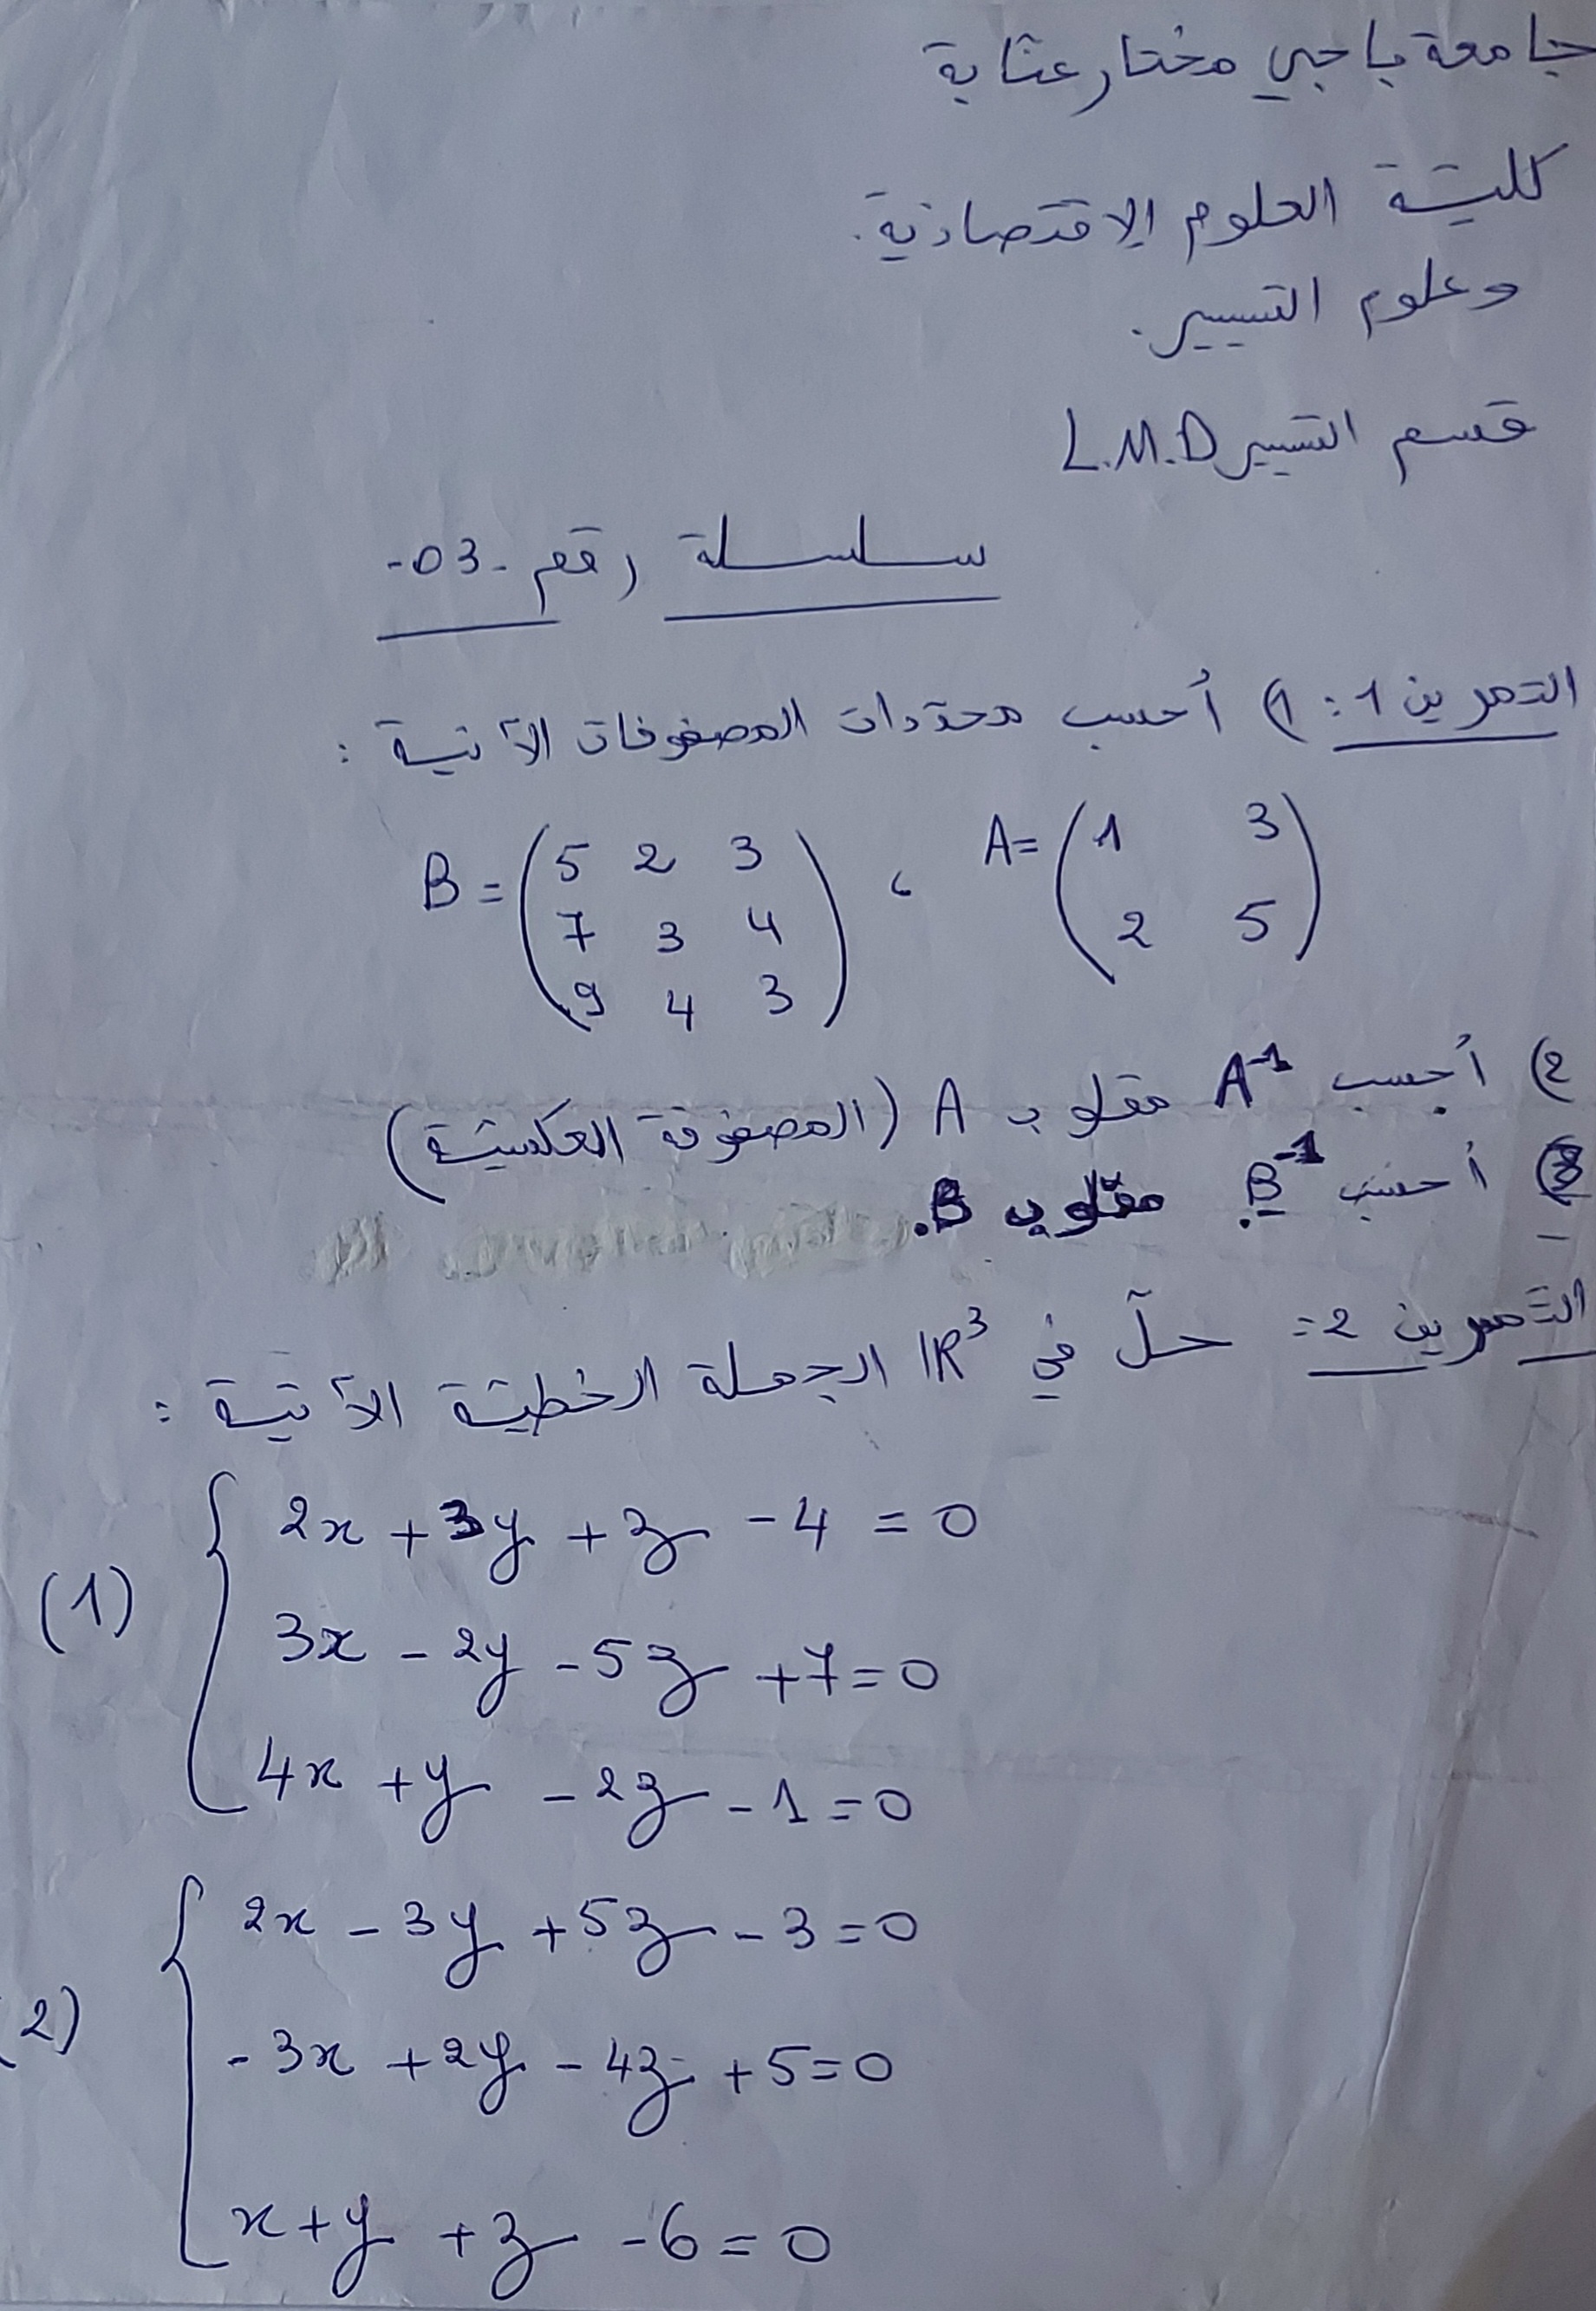 جامعة باجي مختار عنابة
كليّة العلوم الإقتصادية.
وعلوم التسيير.
قسم التسيير L.M.D
سلسلة رقم -03-
التمرين 1: 1) أحسب محدّدات المصفوفات الآتية :
A= (1 3 ، B= (5 2 3
2 5) 7 3 4
9 4 3)
2) أحسب A⁻¹ مقلوب A (المصفوفة العكسيّة)
3) أحسب B⁻¹ مقلوب B.
التّمرين 2: حلّ في IR³ الجملة الخطيّة الآتية :
2x + 3y + z - 4 = 0
(1) 3x - 2y - 5z + 7 = 0
4x + y - 2z - 1 = 0
2x - 3y + 5z - 3 = 0
(2) -3x + 2y - 4z + 5 = 0
x + y + z - 6 = 0